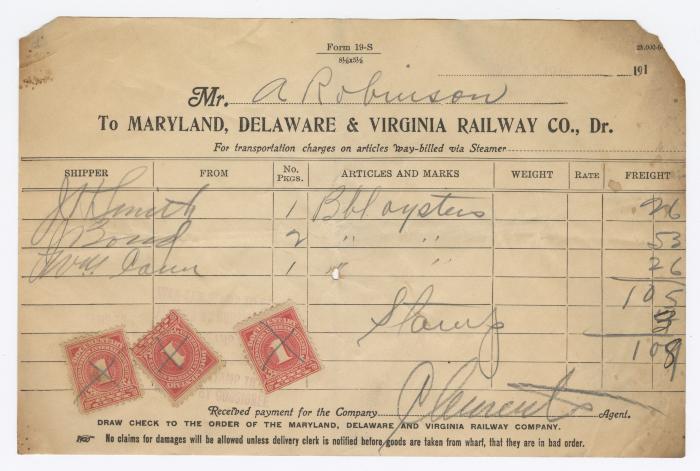 Form 19-S
8½x5½
191
Mr. A Robinson
To MARYLAND, DELAWARE & VIRGINIA RAILWAY CO., Dr.
For transportation charges on articles way-billed via Steamer
SHIPPER FROM No. PKGS. ARTICLES AND MARKS WEIGHT RATE FREIGHT
J H Smith 1 Bbl oysters 26
J Bond 2 " " 53
Wm 1 " " 26
105
Stamp 3
108
DOCUMENTARY 1
DOCUMENTARY 1
DOCUMENTARY 1
Received payment for the Company Clements Agent.
DRAW CHECK TO THE ORDER OF THE MARYLAND, DELAWARE AND VIRGINIA RAILWAY COMPANY.
No claims for damages will be allowed unless delivery clerk is notified before goods are taken from wharf, that they are in bad order.